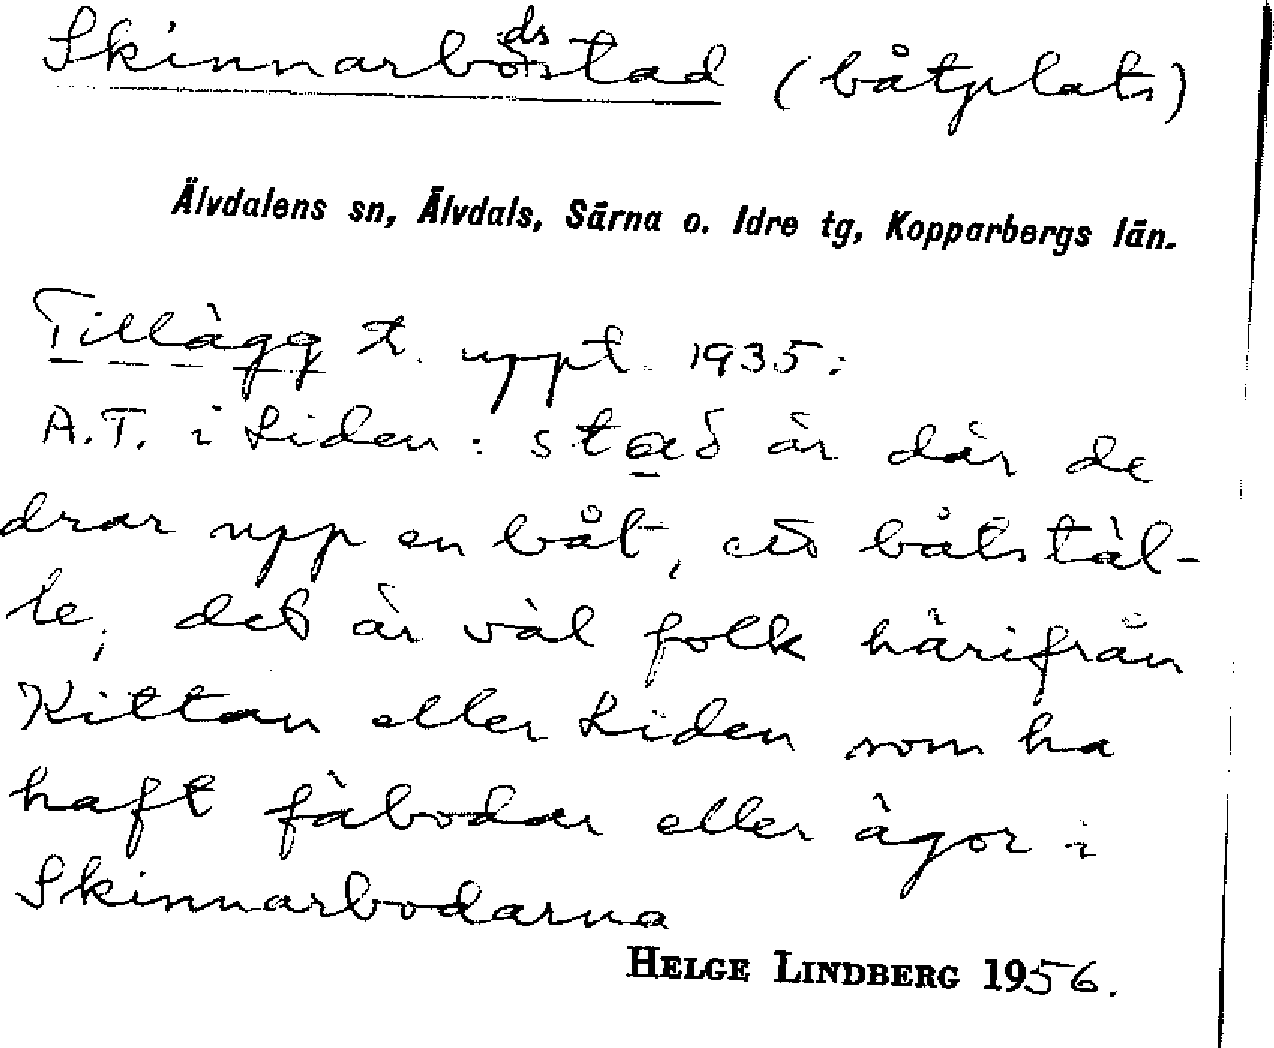 Skinnarbodsstad (båtplats)
Älvdalens sn, Älvdals, Särna o. Idre tg, Kopparbergs län.
Tillägg t. uppt. 1935:
A.T. i Liden: stað är där de
drar upp en båt, ett båtstäl-
le, det är väl folk härifrån
Kittan eller Liden som ha
haft fäbodar eller ägor i
Skinnarbodarna
HELGE LINDBERG 1956.